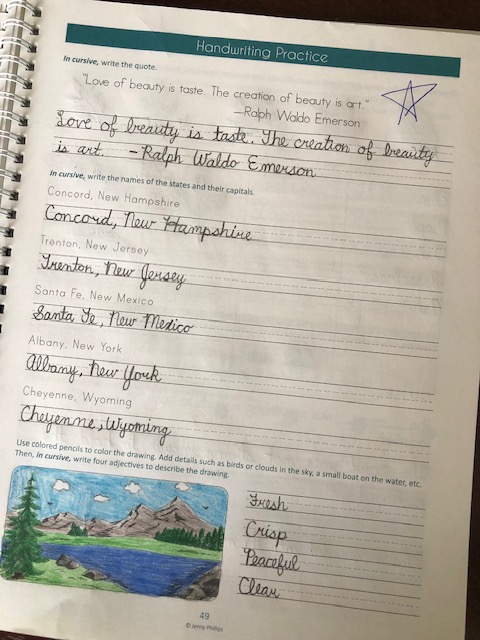 Handwriting Practice
In cursive, write the quote.
"Love of beauty is taste. The creation of beauty is art."
—Ralph Waldo Emerson
Love of beauty is taste. The creation of beauty
is art. -Ralph Waldo Emerson
In cursive, write the names of the states and their capitals.
Concord, New Hampshire
Concord, New Hampshire
Trenton, New Jersey
Trenton, New Jersey
Santa Fe, New Mexico
Santa Fe, New Mexico
Albany, New York
Albany, New York
Cheyenne, Wyoming
Cheyenne, Wyoming
Use colored pencils to color the drawing. Add details such as birds or clouds in the sky, a small boat on the water, etc.
Then, in cursive, write four adjectives to describe the drawing.
Fresh
Crisp
Peaceful
Clear
49
© Jenny Phillips